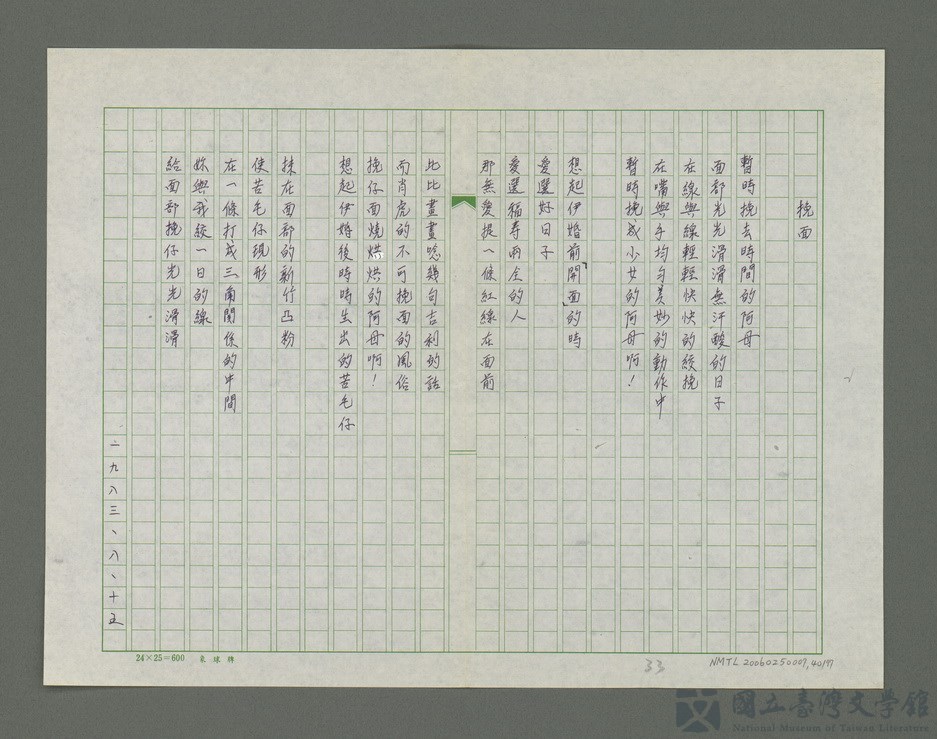 挽面
暫時挽去時間的阿母
面部光光滑滑無汗酸的日子
在線與線輕輕快快的絞挽
在嘴與手均勻美妙的動作中
暫時挽成少女的阿母啊!
想起伊婚前「開面」的時
愛選好日子
愛選福壽兩全的人
那無愛提一條紅線在面前
比比畫畫唸幾句吉利的話
而肖虎的不可挽面的風俗
挽仔面燒烘烘的阿母啊!
想起伊婚後時時生出的苦毛仔
抹在面部的新竹凸粉
使苦毛仔現形
在一條打成三角關係的中間
妳與我絞一日的線
給面部挽仔光光滑滑
一九八三、八、十五
24×25=600
33
NMTL 20060250009,40/17
國立臺灣文學館
National Museum of Taiwan Literature